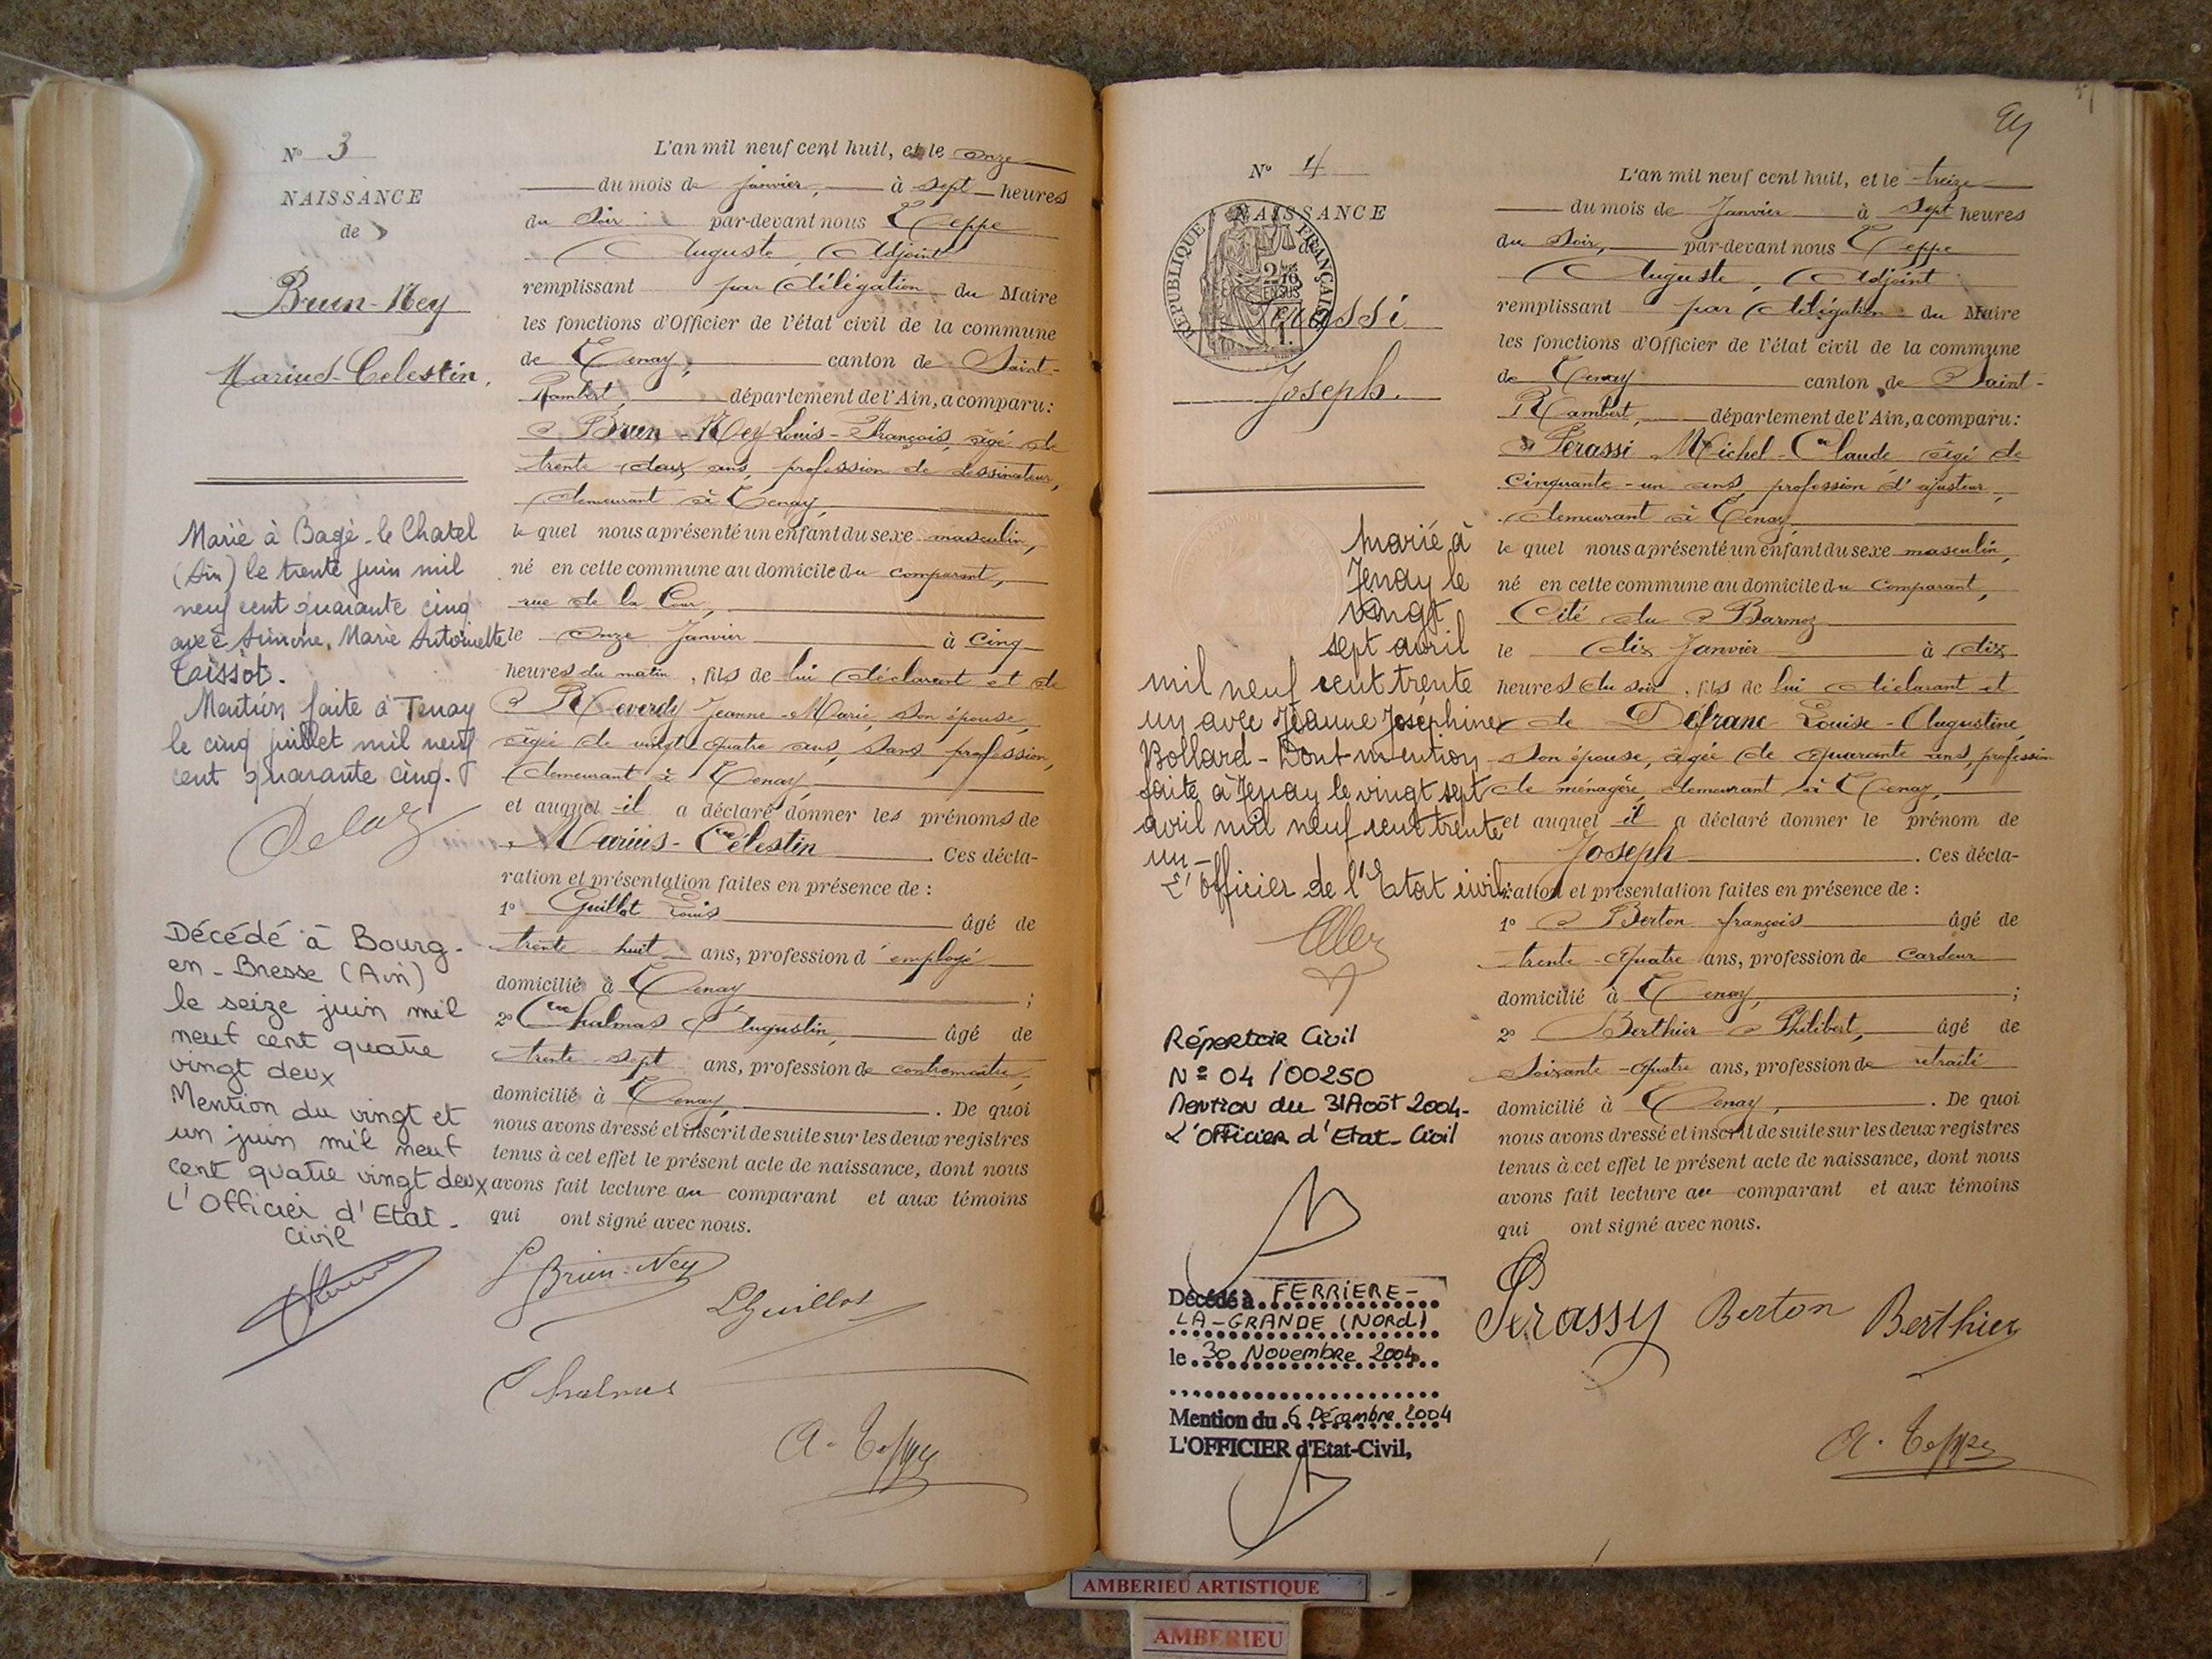 N° 3
NAISSANCE
de
Brun-Ney
Marius-Celestin,
Marié à Bagé-le Chatel
(Ain) le trente juin mil
neuf cent quarante cinq
avec Simone, Marie Antoinette
Taissot.
Mention faite à Tenay
le cinq juillet mil neuf
cent quarante cinq.
Décédé à Bourg-
en-Bresse (Ain)
le seize juin mil
neuf cent quatre
vingt deux
Mention du vingt et
un juin mil neuf
cent quatre vingt deux
L'Officier d'Etat-
Civil
L'an mil neuf cent huit, et le onze
du mois de janvier, à sept heures
du soir par-devant nous Teppe
Auguste, Adjoint
remplissant par délégation du Maire
les fonctions d'Officier de l'état civil de la commune
de Tenay, canton de Saint-
Rambert, département de l'Ain, a comparu:
Brun-Ney Louis-François, âgé de
trente deux ans, profession de dessinateur,
demeurant à Tenay,
le quel nous a présenté un enfant du sexe masculin,
né en cette commune au domicile du comparant,
rue de la Cour,
le onze Janvier à cinq
heures du matin, fils de lui déclarant et de
Reverdy Jeanne-Marie, son épouse,
âgée de vingt quatre ans, sans profession,
demeurant à Tenay
et auquel il a déclaré donner les prénoms de
Marius-Célestin. Ces décla-
ration et présentation faites en présence de :
1° Guillot Louis âgé de
trente huit ans, profession d'employé
domicilié à Tenay ;
2° Chalmas Augustin, âgé de
trente-sept ans, profession de contremaître,
domicilié à Tenay, . De quoi
nous avons dressé et inscrit de suite sur les deux registres
tenus à cet effet le présent acte de naissance, dont nous
avons fait lecture au comparant et aux témoins
qui ont signé avec nous.
L Brun-Ney
L Guillot
Chalmas
A. Teppe
N° 4
NAISSANCE
de
RÉPUBLIQUE FRANÇAISE
Perassi
Joseph.
marié à
Tenay le
vingt
sept avril
mil neuf cent trente
un avec Jeanne Joséphine
Bollard - Dont mention
faite à Tenay le vingt sept
avril mil neuf cent trente
un -
L'Officier de l'Etat civil:
Répertoir Civil
N° 04 / 00250
Mention du 31 Août 2004-
L'Officier d'Etat-Civil
Décédé à FERRIERE-
LA-GRANDE (Nord)
le 30 Novembre 2004
Mention du 6 Décembre 2004
L'OFFICIER d'Etat-Civil,
L'an mil neuf cent huit, et le treize
du mois de Janvier à sept heures
du soir, par-devant nous Teppe
Auguste, Adjoint
remplissant par délégation du Maire
les fonctions d'Officier de l'état civil de la commune
de Tenay canton de Saint-
Rambert, département de l'Ain, a comparu:
Perassi Michel-Claude âgé de
cinquante-un ans, profession d'ajusteur,
demeurant à Tenay,
le quel nous a présenté un enfant du sexe masculin,
né en cette commune au domicile du comparant,
Cité du Barmoz
le dix Janvier à dix
heures du soir, fils de lui déclarant et
de Défranc Louise-Augustine,
son épouse, âgée de quarante ans, profession
de ménagère, demeurant à Tenay,
et auquel il a déclaré donner le prénom de
Joseph. Ces décla-
ration et présentation faites en présence de :
1° Berton françois âgé de
trente-quatre ans, profession de cardeur
domicilié à Tenay, ;
2° Berthier Philibert, âgé de
soixante-quatre ans, profession de retraité
domicilié à Tenay, . De quoi
nous avons dressé et inscrit de suite sur les deux registres
tenus à cet effet le présent acte de naissance, dont nous
avons fait lecture au comparant et aux témoins
qui ont signé avec nous.
Perassy Berton Berthier
A. Teppe
AMBERIEU ARTISTIQUE
AMBERIEU